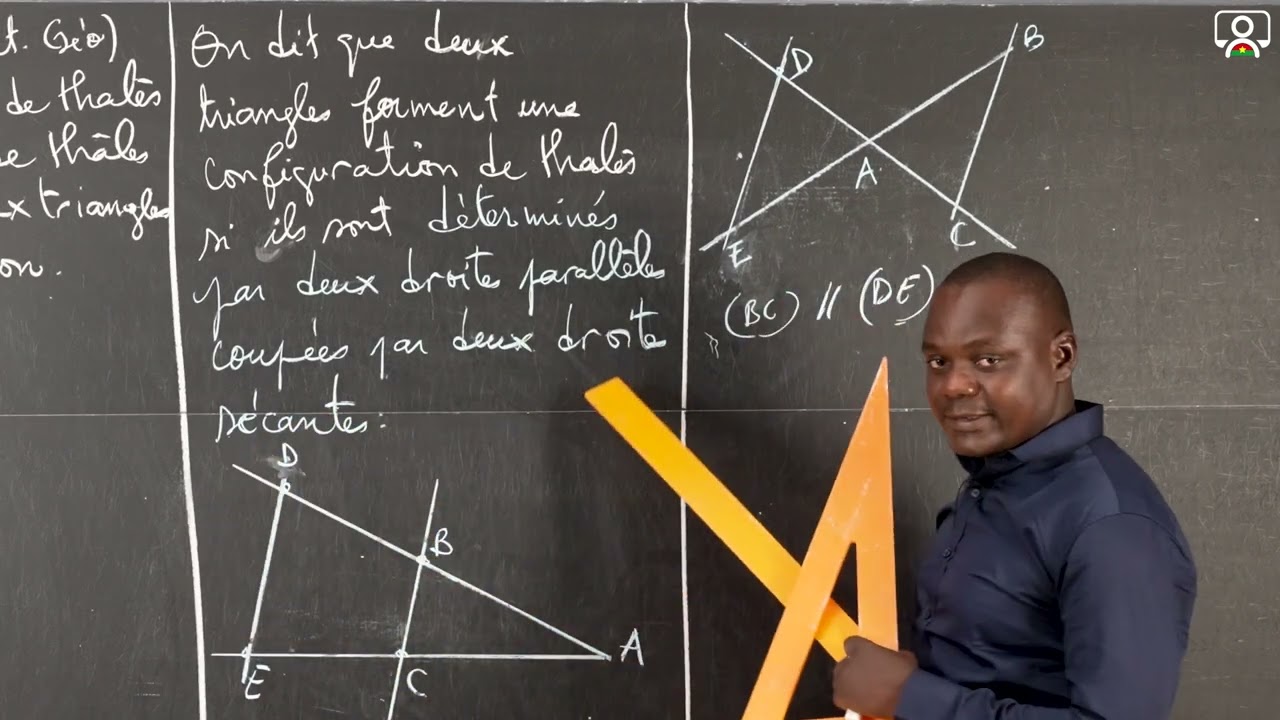 t. Géo)
de thalès
e thâles
x triangles
on.
On dit que deux
triangles forment une
configuration de thalès
si ils sont déterminés
par deux droite parallèles
coupées par deux droite
sécantes:
D
B
A
E
C
D
B
A
E
C
(BC) // (DE)